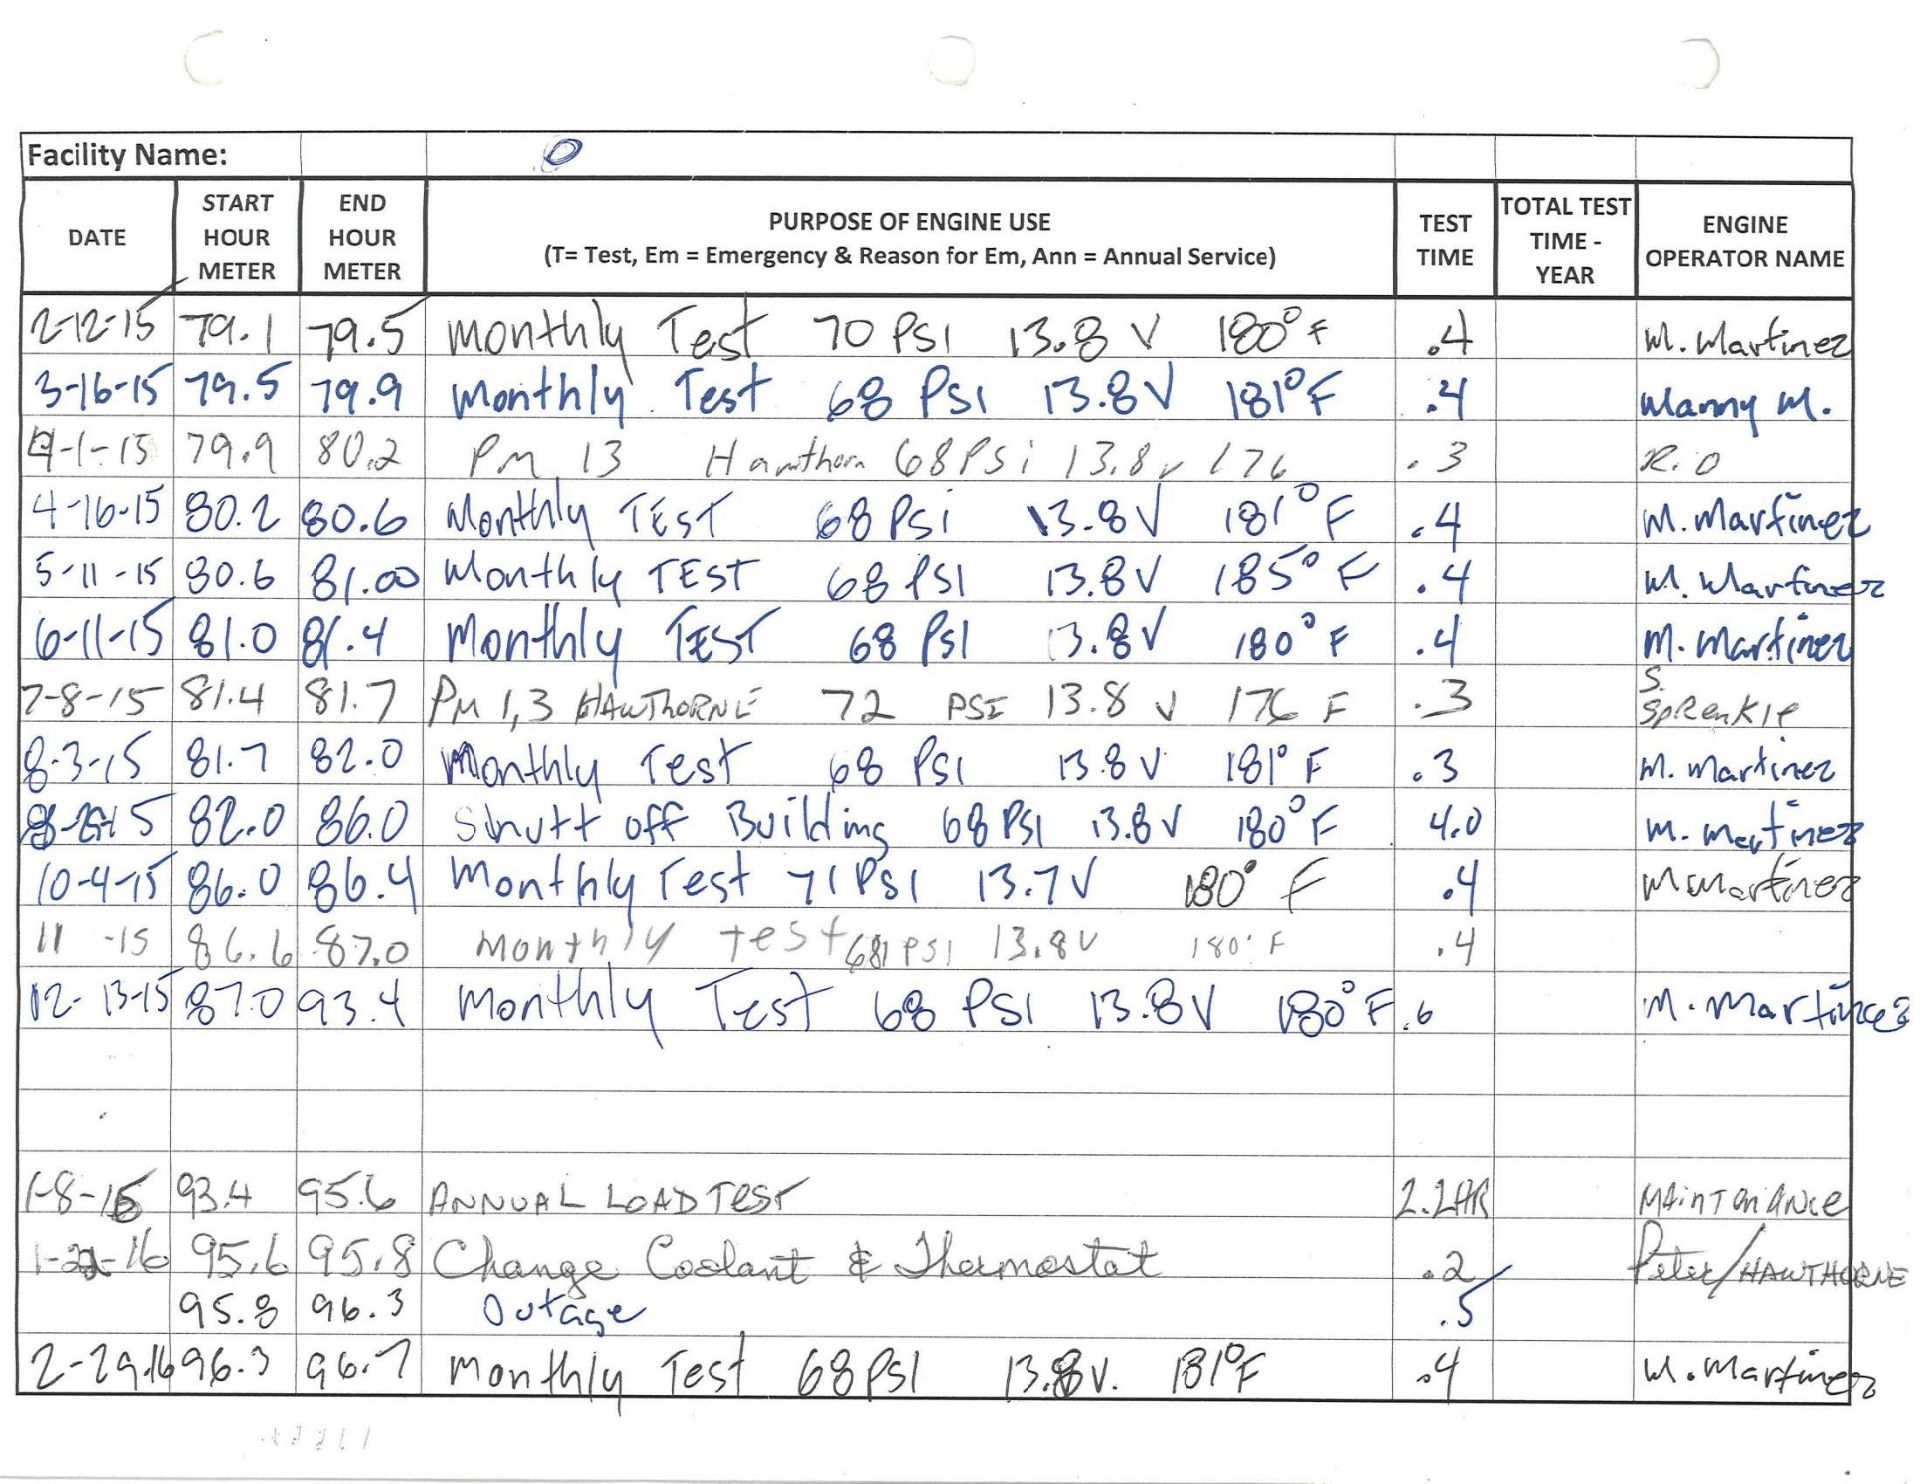 Facility Name:
DATE START HOUR METER END HOUR METER PURPOSE OF ENGINE USE (T= Test, Em = Emergency & Reason for Em, Ann = Annual Service) TEST TIME TOTAL TEST TIME - YEAR ENGINE OPERATOR NAME
2-12-15 79.1 79.5 Monthly Test 70 PSI 13.8 V 180°F .4 M. Martinez
3-16-15 79.5 79.9 Monthly Test 68 PSI 13.8V 181°F .4 Manny M.
4-1-15 79.9 80.2 Pm 13 Hawthorn 68 PSi 13.8v 176 .3 R.O
4-16-15 80.2 80.6 Monthly TEST 68 PSi 13.8V 181°F .4 M. Martinez
5-11-15 80.6 81.00 Monthly TEST 68 PSI 13.8V 185°F .4 M. Martinez
6-11-15 81.0 81.4 Monthly TEST 68 PSI 13.8V 180°F .4 M. Martinez
7-8-15 81.4 81.7 PM 1,3 HAWTHORNE 72 PSI 13.8 V 176 F .3 S. Sprenkle
8-3-15 81.7 82.0 Monthly Test 68 PSI 13.8V 181°F .3 M. Martinez
82.0 86.0 Shutt off Building 68 PSI 13.8V 180°F 4.0 M. Martinez
10-4-15 86.0 86.4 Monthly Test 71 PSI 13.7V 180°F .4 M Martinez
11 -15 86.6 87.0 Monthly test PSI 13.8V 180°F .4
12-13-15 87.0 93.4 Monthly Test 68 PSI 13.8V 180°F .6 M. Martinez
1-8-16 93.4 95.6 ANNUAL LOAD TEST 2.2HR MAINTANANCE
95.6 95.8 Change Coolant & Thermostat .2 Peter/HAWTHORNE
95.8 96.3 Outage .5
2-29.16 96.3 96.7 Monthly Test 68 PSI 13.8V. 181°F .4 M. Martinez